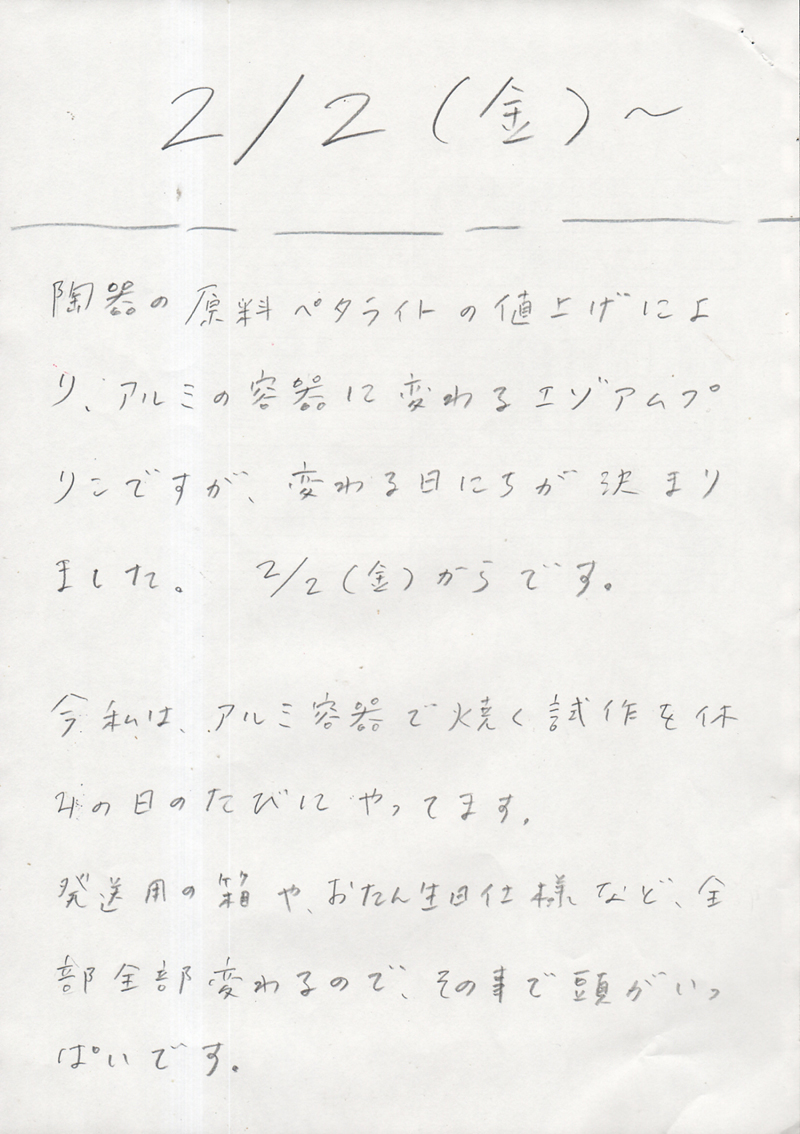 2/2(金)~
陶器の原料ペタライトの値上げによ
り、アルミの容器に変わるエゾアムプ
リンですが、変わる日にちが決まり
ました。 2/2(金)からです。
今私は、アルミ容器で焼く試作を休
みの日のたびにやってます。
発送用の箱や、おたん生日仕様など、全
部全部変わるので、その事で頭がいっ
ぱいです。